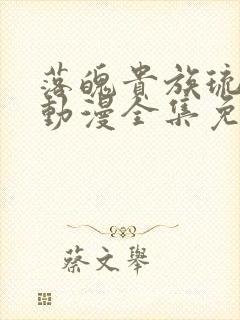 落魄貴族琉
動漫全集免
蔡文舉